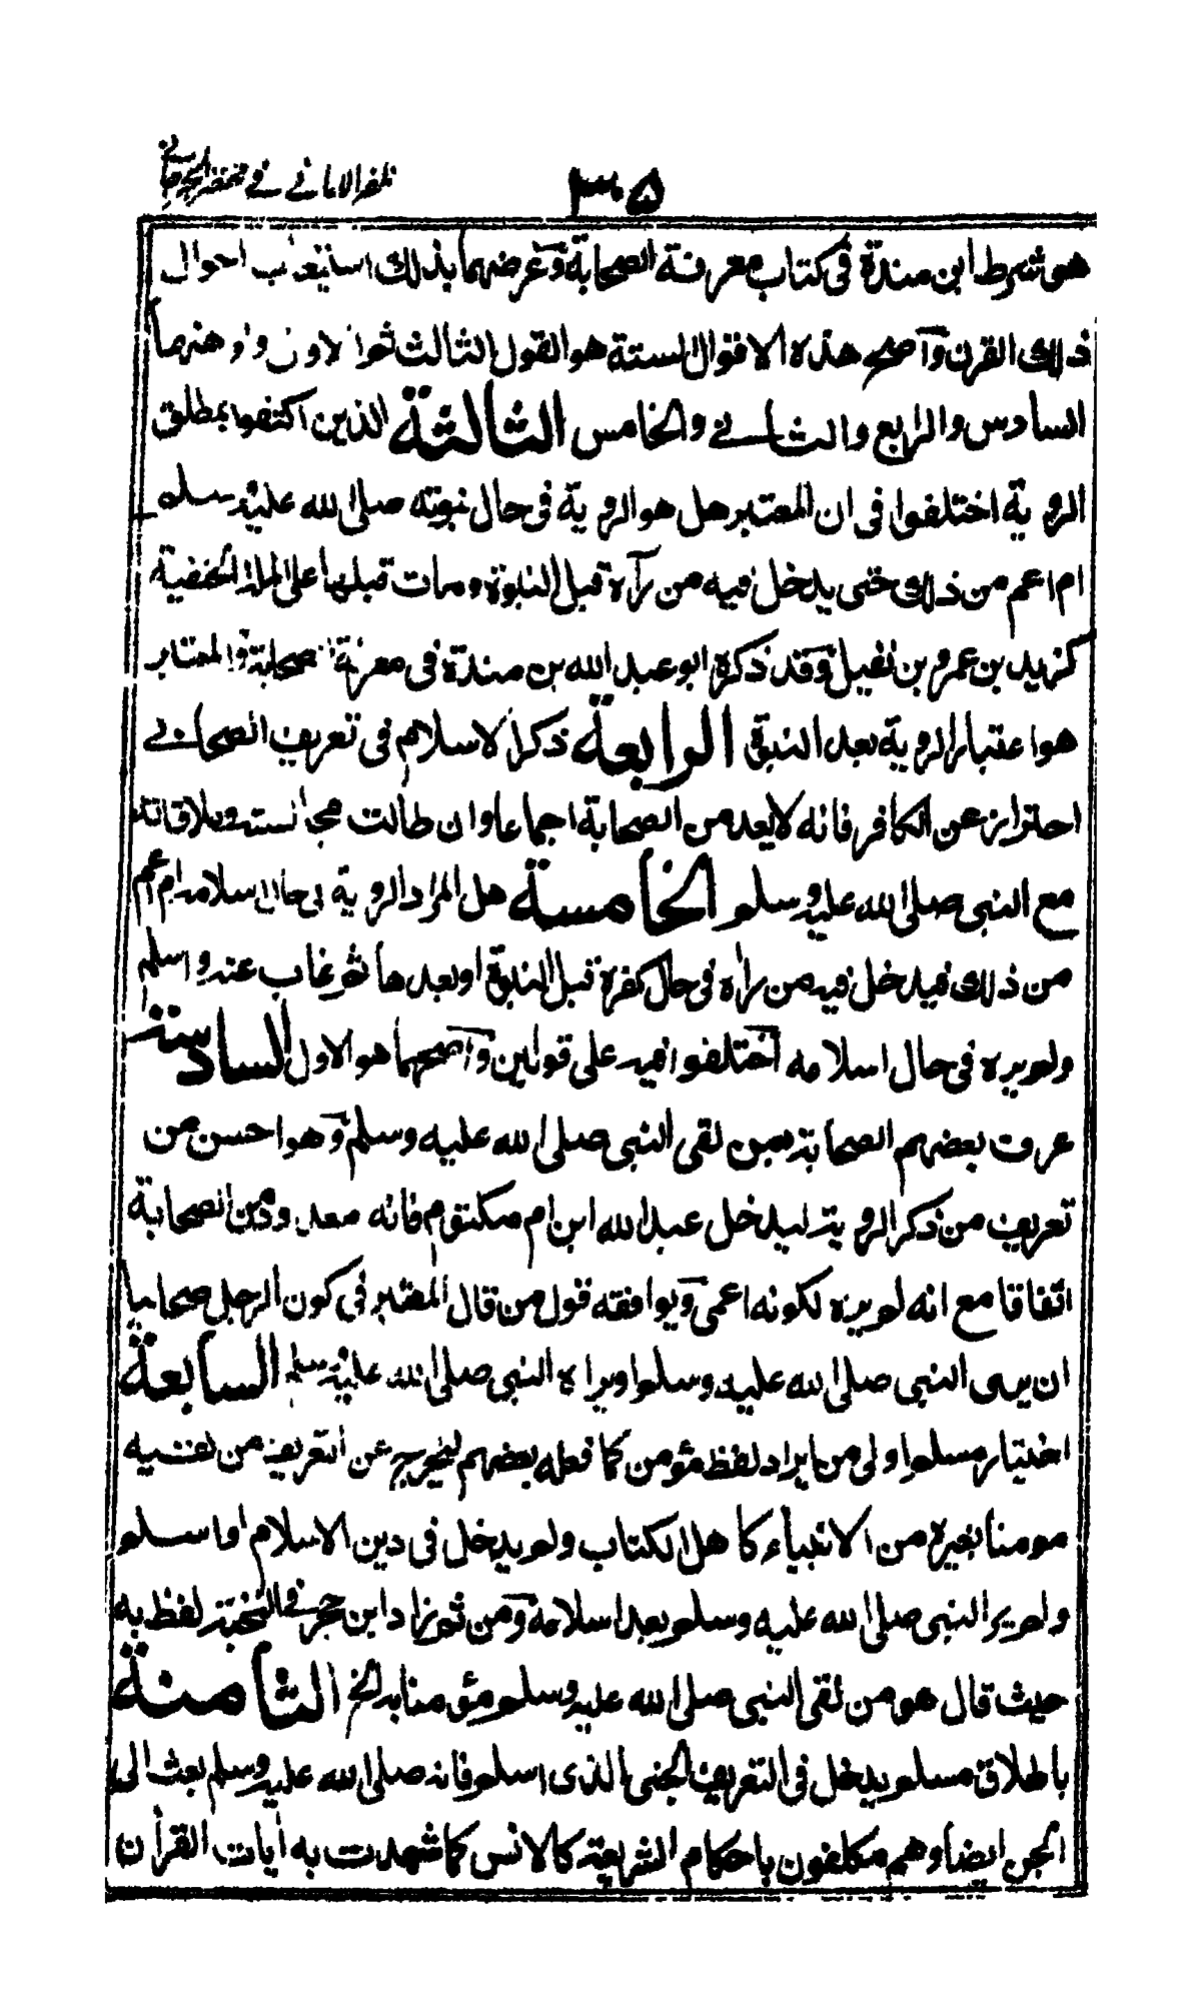 ظفر الامانے فے مختصر الجرجانے
٣٠٥
هو شرط ابن مندة فى كتاب معرفة الصحابة وغرضهما بذلك استيعاب احوال
ذلك القرن وآصح هذه الاقوال الستة هو القول الثالث ثم الاول واوهنها
السادس والرابع والثانے والخامس الثالثة الذين اكتفوا بمطلق
الروية اختلفوا فى ان المعتبر هل هو الروية فى حال نبوته صلى الله عليه وسلم
ام اعم من ذلك حتى يدخل فيه من رآه قبل النبوة ومات قبلها على الملة الحنفية
كزيد بن عمرو بن نفيل وقد ذكره ابو عبد الله بن مندة فى معرفة الصحابة والمعتبر
هو اعتبار الروية بعد النبوة الرابعة ذكر الاسلام فى تعريف الصحابے
احتراز عن الكافر فانه لا يعد من الصحابة اجماعا وان طالت مجالسته وملاقاته
مع النبى صلى الله عليه وسلم الخامسة هل المراد الروية فى حال اسلامه ام اعم
من ذلك فيدخل فيه من راٰه فى حال كفره قبل النبوة او بعدها ثم غاب عنه واسلم
ولم يره فى حال اسلامه آختلفوا فيه على قولين وآصحهما هو الاول السادسة
عرف بعضهم الصحابة بمن لقى النبى صلى الله عليه وسلم وهو احسن من
تعريف من ذكر الروية ليدخل عبد الله ابن ام مكتوم فانه معدود من الصحابة
اتفاقا مع انه لم يره لكونه اعمى ويوافقه قول من قال المعتبر فى كون الرجل صحابيا
ان يرى النبى صلى الله عليه وسلم او يراه النبى صلى الله عليه وسلم السابعة
اختيار مسلم اولى من ايراد لفظ مؤمن كما فعله بعضهم ليخرج عن التعريف من لقيه
مومنا بغيره من الانبياء كاهل الكتاب ولم يدخل فى دين الاسلام او اسلم
ولم ير النبى صلى الله عليه وسلم بعد اسلامه ومن ثم زاد ابن حجر فے النخبة لفظ به
حيث قال هو من لقى النبى صلى الله عليه وسلم مؤمنا به الخ الثامنة
باطلاق مسلم يدخل فى التعريف الجنى الذى اسلم فانه صلى الله عليه وسلم بعث الى
الجن ايضا وهم مكلفون باحكام الشريعة كالانس كما شهدت به اٰيات القراٰن